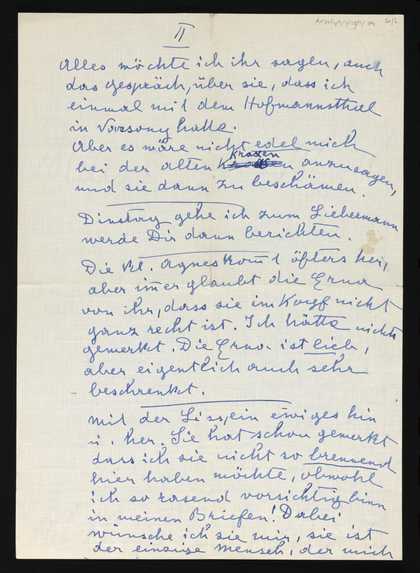 II
Alles möchte ich ihr sagen, auch
das Gespräch, über sie, dass ich
einmal mit dem Hofmannsthal
in Varsany hatte.
Aber es wäre nicht edel mich
bei der alten Kraxen anzusagen,
und sie dann zu beschämen.
Dinstag gehe ich zum Liebermann
werde Dir dann berichten.
Die kl. Agnes kom̄t öfters her,
aber im̄er glaubt die Erna
von ihr, dass sie im Kopf nicht
ganz recht ist. Ich hätte nichts
gemerkt. Die Erna ist lieb,
aber eigentlich auch sehr
beschrenkt.
mit der Liss, ein ewiges hin
u. her. Sie hat schon gemerkt
dass ich sie nicht so brennend
hier haben möchte, obwohl
ich so rasend vorsichtig binn
in meinen Briefen! Dabei
wünsche ich sie mir, sie ist
der einzige Mensch, der mich